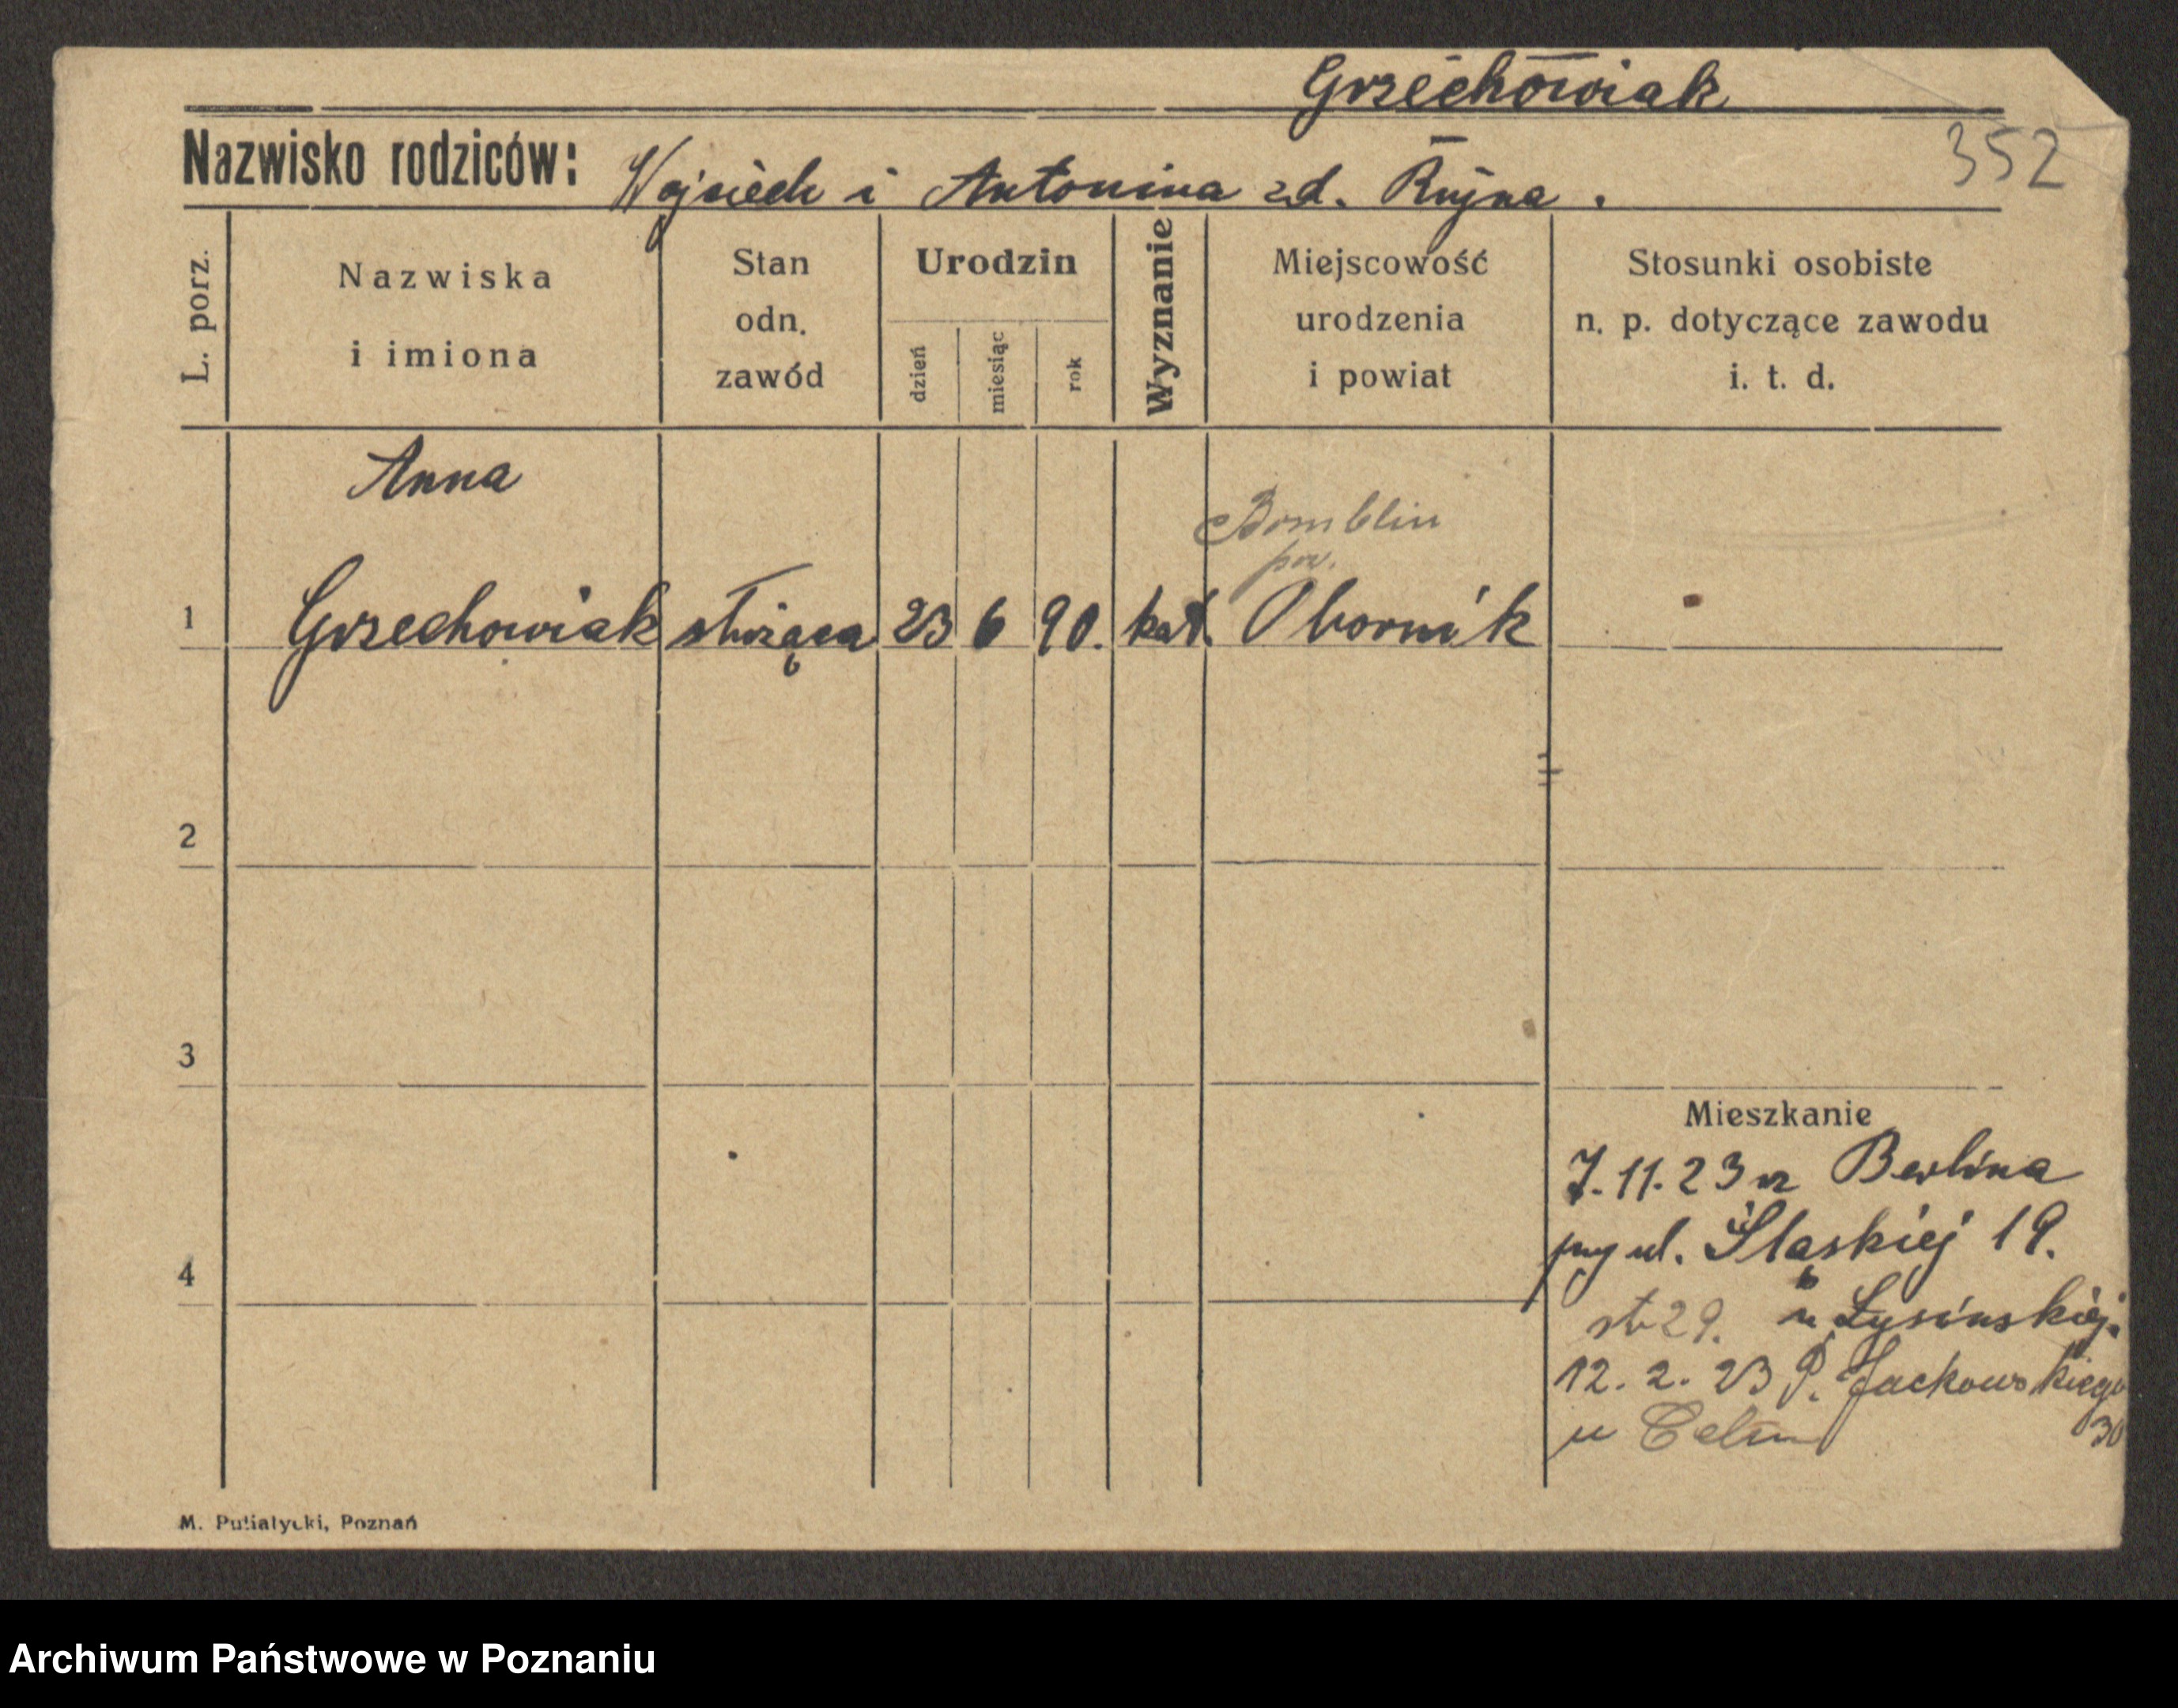 Grzechowiak
352
Nazwisko rodziców: Wojciech i Antonina zd. Rujna.
L. porz.
Nazwiska
i imiona
Stan
odn.
zawód
Urodzin
dzień
miesiąc
rok
Wyznanie
Miejscowość
urodzenia
i powiat
Stosunki osobiste
n. p. dotyczące zawodu
i. t. d.
Anna
Bomblin
pow.
1 Grzechowiak służąca 23 6 90. kat. Obornik
2
3
Mieszkanie
7.11.23 z Berlina
przy ul. Śląskiej 19.
4
29. u Łysińskiej.
12. 2. 23 P. Jackowskiego
30
u
M. Putiatycki, Poznań
Archiwum Państwowe w Poznaniu